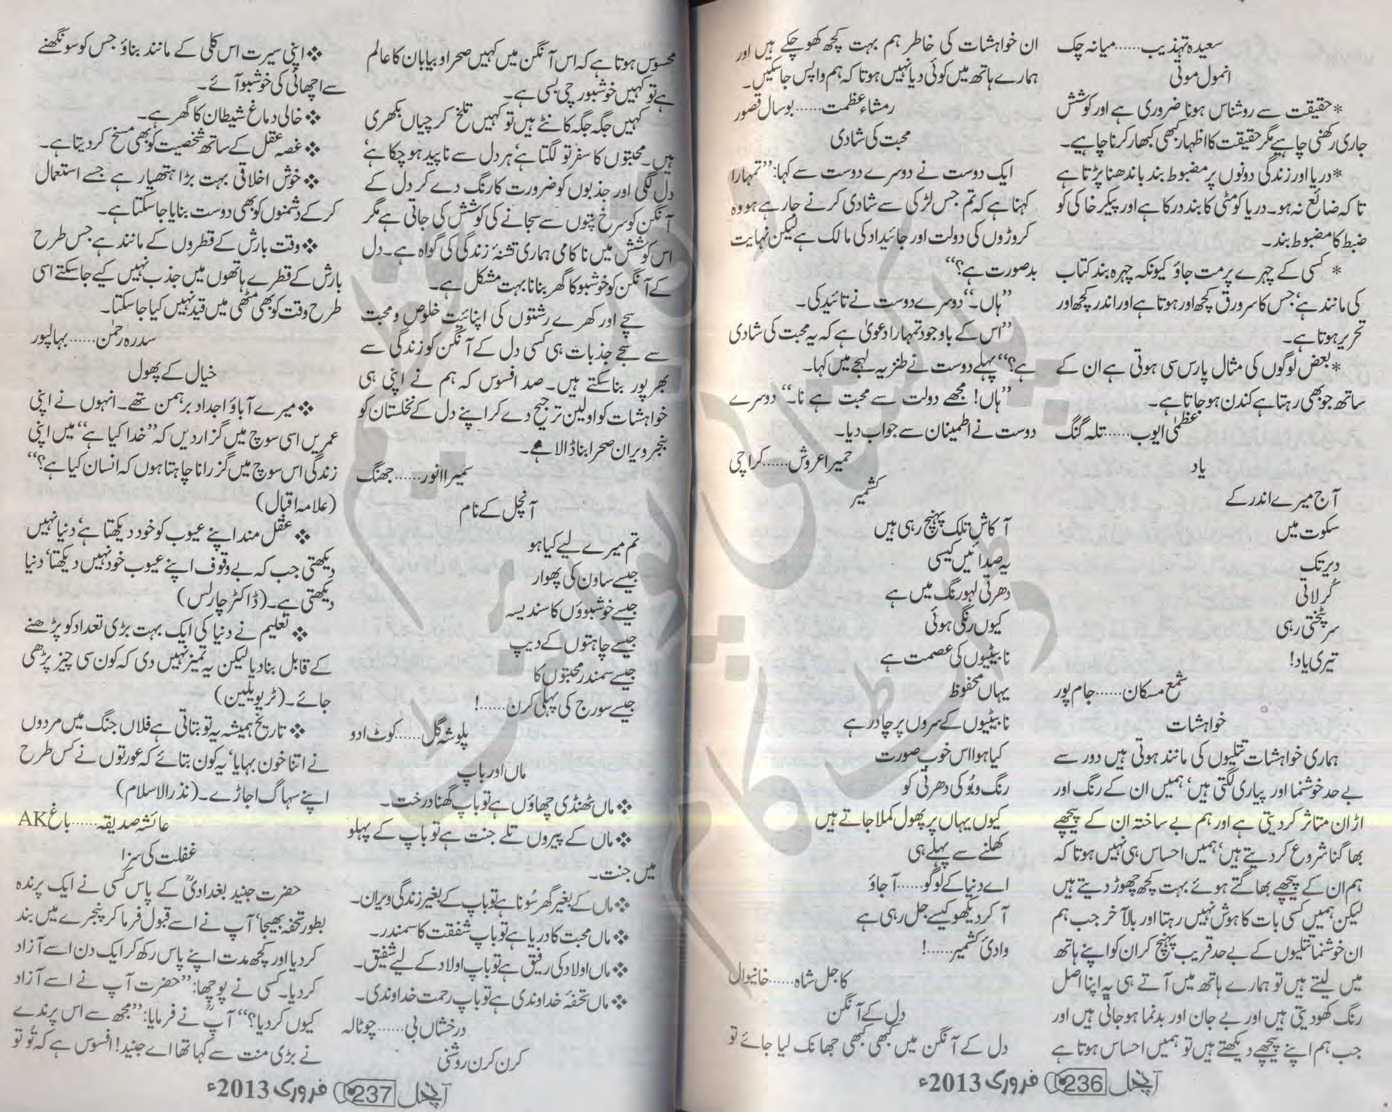 سعیدہ تہذیب......میانہ چک
انمول موتی
* حقیقت سے روشناس ہونا ضروری ہے اور کوشش
جاری رکھنی چاہیے مگر حقیقت کا اظہار بھی کبھار کرنا چاہیے۔
* دریا اور زندگی دونوں پر مضبوط بند باندھنا پڑتا ہے
تاکہ ضائع نہ ہو۔ دریا کو مٹی کا بند درکار ہے اور پیکر خاکی کو
ضبط کا مضبوط بند۔
* کسی کے چہرے پر مت جاؤ کیونکہ چہرہ بند کتاب
کی مانند ہے‘ جس کا سرورق کچھ اور ہوتا ہے اور اندر کچھ اور
تحریر ہوتا ہے۔
* بعض لوگوں کی مثال پارس سی ہوتی ہے ان کے
ساتھ جو بھی رہتا ہے کندن ہو جاتا ہے۔
عظمیٰ ایوب......تلہ گنگ
یاد
آج میرے اندر کے
سکوت میں
دیر تک
کُرلاتی
سر پٹختی رہی
تیری یاد!
شمع مسکان......جام پور
خواہشات
ہماری خواہشات تتلیوں کی مانند ہوتی ہیں دور سے
بے حد خوشنما اور پیاری لگتی ہیں‘ ہمیں ان کے رنگ اور
اڑان متاثر کردیتی ہے اور ہم بے ساختہ ان کے پیچھے
بھاگنا شروع کردیتے ہیں‘ ہمیں احساس ہی نہیں ہوتا کہ
ہم ان کے پیچھے بھاگتے ہوئے بہت کچھ چھوڑ دیتے ہیں
لیکن ہمیں کسی بات کا ہوش نہیں رہتا اور بالآخر جب ہم
ان خوشنما تتلیوں کے بے حد قریب پہنچ کر ان کو اپنے ہاتھ
میں لیتے ہیں تو ہمارے ہاتھ میں آتے ہی یہ اپنا اصل
رنگ کھو دیتی ہیں اور بے جان اور بدنما ہو جاتی ہیں اور
جب ہم اپنے پیچھے دیکھتے ہیں تو ہمیں احساس ہوتا ہے
ان خواہشات کی خاطر ہم بہت کچھ کھو چکے ہیں اور
ہمارے ہاتھ میں کوئی دیا نہیں ہوتا کہ ہم واپس جاسکیں۔
رمشاء عظمت......بوسال قصور
محبت کی شادی
ایک دوست نے دوسرے دوست سے کہا: ”تمہارا
کہنا ہے کہ تم جس لڑکی سے شادی کرنے جارہے ہو وہ
کروڑوں کی دولت اور جائیداد کی مالک ہے لیکن نہایت
بدصورت ہے؟“
”ہاں۔“ دوسرے دوست نے تائید کی۔
”اس کے باوجود تمہارا دعویٰ ہے کہ یہ محبت کی شادی
ہے؟“ پہلے دوست نے طنزیہ لہجے میں کہا۔
”ہاں! مجھے دولت سے محبت ہے نا۔“ دوسرے
دوست نے اطمینان سے جواب دیا۔
حمیرا عروش......کراچی
کشمیر
آکاش تلک پہنچ رہی ہیں
یہ صدائیں کیسی
دھرتی لہو رنگ میں ہے
کیوں رنگی ہوئی
نا بیٹیوں کی عصمت ہے
یہاں محفوظ
نا بیٹیوں کے سروں پر چادر ہے
کیا ہوا اس خوب صورت
رنگ و بُو کی دھرتی کو
کیوں یہاں پر پھول کملا جاتے ہیں
کھلنے سے پہلے ہی
اے دنیا کے لوگو......آجاؤ
آکر دیکھو کیسے جل رہی ہے
وادیٔ کشمیر......!
کاجل شاہ......خانیوال
دل کے آنگن
دل کے آنگن میں کبھی کبھی جھانک لیا جائے تو
آنچل 236 فروری 2013ء
محسوس ہوتا ہے کہ اس آنگن میں کہیں صحرا و بیابان کا عالم
ہے تو کہیں خوشبو رچی بسی ہے۔
کہیں جگہ جگہ کانٹے ہیں تو کہیں تلخ کرچیاں بکھری
ہیں۔ محبتوں کا سفر تو لگتا ہے‘ ہر دل سے ناپید ہوچکا ہے‘
دل لگی اور جذبوں کو ضرورت کا رنگ دے کر دل کے
آنگن کو سرخ پتوں سے سجانے کی کوشش کی جاتی ہے مگر
اس کوشش میں ناکامی ہماری تشنۂ زندگی کی گواہ ہے۔ دل
کے آنگن کو خوشبو کا گھر بنانا بہت مشکل ہے۔
سچے اور کھرے رشتوں کی اپنائیت خلوص و محبت
سے سجے جذبات ہی کسی دل کے آنگن کو زندگی سے
بھرپور بناسکتے ہیں۔ صد افسوس کہ ہم نے اپنی ہی
خواہشات کو اولین ترجیح دے کر اپنے دل کے نخلستان کو
بنجر و ویران صحرا بنا ڈالا ہے۔
سمیرا انور......جھنگ
آنچل کے نام
تم میرے لیے کیا ہو
جیسے ساون کی پھوار
جیسے خوشبوؤں کا سندیسہ
جیسے چاہتوں کے دیپ
جیسے سمندر محبتوں کا
جیسے سورج کی پہلی کرن......!
پلوشہ گل......کوٹ ادو
ماں اور باپ
❖ ماں ٹھنڈی چھاؤں ہے تو باپ گھنا درخت۔
❖ ماں کے پیروں تلے جنت ہے تو باپ کے پہلو
میں جنت۔
❖ ماں کے بغیر گھر سُونا ہے تو باپ کے بغیر زندگی ویران۔
❖ ماں محبت کا دریا ہے تو باپ شفقت کا سمندر۔
❖ ماں اولاد کی رفیق ہے تو باپ اولاد کے لیے شفیق۔
❖ ماں تحفۂ خداوندی ہے تو باپ رحمت خداوندی۔
درخشاں بی......چوٹالہ
کرن کرن روشنی
❖ اپنی سیرت اس کلی کے مانند بناؤ جس کو سونگھنے
سے اچھائی کی خوشبو آئے۔
❖ خالی دماغ شیطان کا گھر ہے۔
❖ غصہ عقل کے ساتھ شخصیت کو بھی مسخ کردیتا ہے۔
❖ خوش اخلاقی بہت بڑا ہتھیار ہے جسے استعمال
کرکے دشمنوں کو بھی دوست بنایا جاسکتا ہے۔
❖ وقت بارش کے قطروں کے مانند ہے جس طرح
بارش کے قطرے ہاتھوں میں جذب نہیں کیے جاسکتے اسی
طرح وقت کو بھی مٹھی میں قید نہیں کیا جاسکتا۔
سدرہ رحمٰن......بہالپور
خیال کے پھول
❖ میرے آباؤ اجداد برہمن تھے۔ انہوں نے اپنی
عمریں اسی سوچ میں گزار دیں کہ ”خدا کیا ہے“ میں اپنی
زندگی اس سوچ میں گزرانا چاہتا ہوں کہ انسان کیا ہے؟“
(علامہ اقبال)
❖ عقل مند اپنے عیوب کو خود دیکھتا ہے‘ دنیا نہیں
دیکھتی جب کہ بے وقوف اپنے عیوب خود نہیں دیکھتا‘ دنیا
دیکھتی ہے۔ (ڈاکٹر چارلس)
❖ تعلیم نے دنیا کی ایک بہت بڑی تعداد کو پڑھنے
کے قابل بنادیا لیکن یہ تمیز نہیں دی کہ کون سی چیز پڑھی
جائے۔ (ٹریویلین)
❖ تاریخ ہمیشہ یہ تو بتاتی ہے فلاں جنگ میں مردوں
نے اتنا خون بہایا‘ یہ کون بتائے کہ عورتوں نے کس طرح
اپنے سہاگ اجاڑے۔ (نذر الاسلام)
عائشہ صدیقہ......باغ AK
غفلت کی سزا
حضرت جنید بغدادیؒ کے پاس کسی نے ایک پرندہ
بطور تحفہ بھیجا‘ آپ نے اسے قبول فرما کر پنجرے میں بند
کردیا اور کچھ مدت اپنے پاس رکھ کر ایک دن اسے آزاد
کردیا۔ کسی نے پوچھا: ”حضرت آپ نے اسے آزاد
کیوں کردیا؟“ آپؒ نے فرمایا: ”مجھ سے اس پرندے
نے بڑی منت سے کہا تھا اے جنید! افسوس ہے کہ تُو تو
آنچل 237 فروری 2013ء